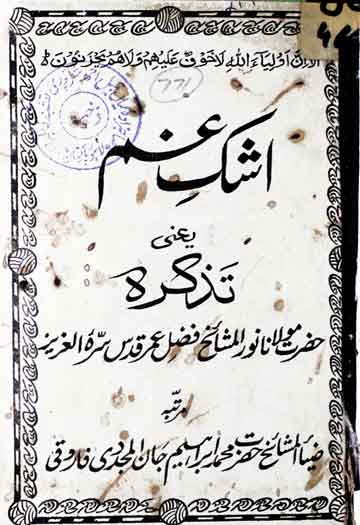 الا ان اولیاء اللہ لا خوف علیھم ولا ھم یحزنون ط
(۷۷۱)
اشکِ غم
یعنی
تذکرہ
حضرت مولانا نور المشائخ فضل عمر قدس سرہٗ العزیز
مرتبہ
ضیاء المشائخ حضرت محمد ابراہیم جان المجددی فاروقی